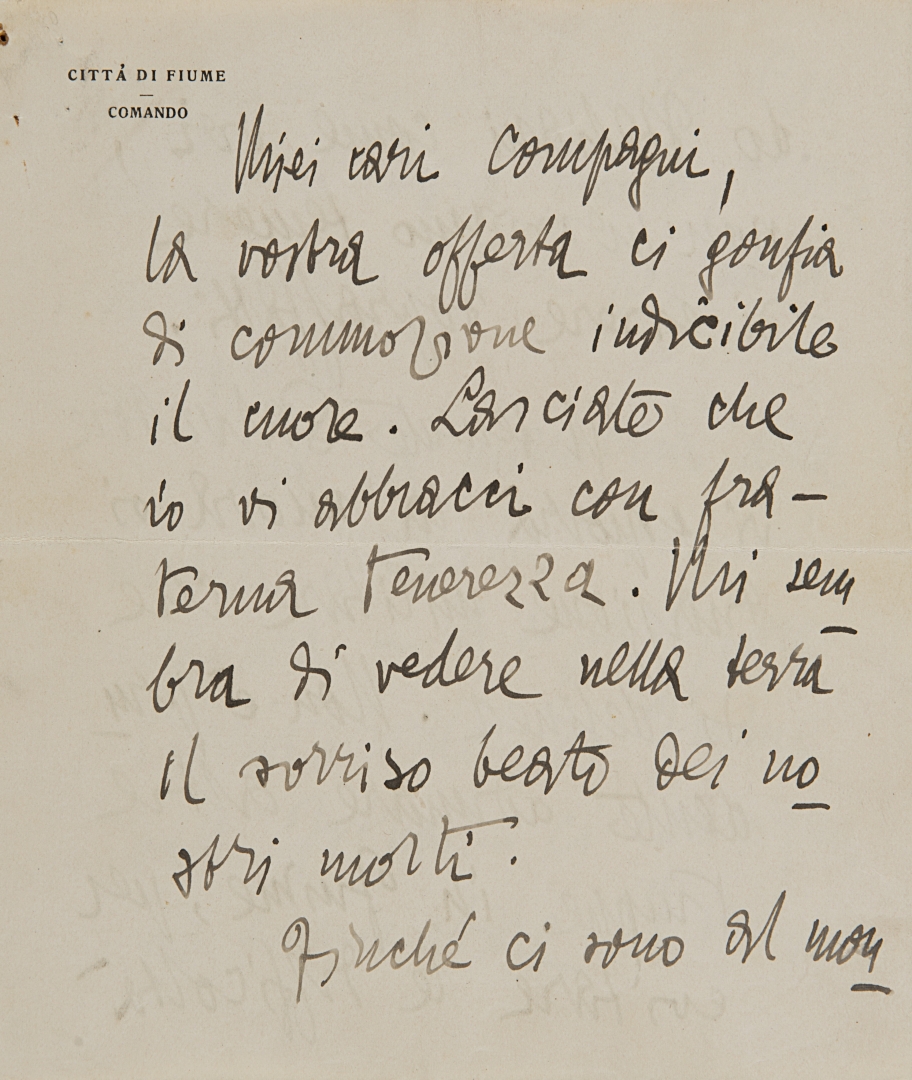 CITTÀ DI FIUME
COMANDO
Miei cari compagni,
la vostra offerta ci gonfia
di commozione indicibile
il cuore. Lasciate che
io vi abbracci con fra-
terna tenerezza. Mi sem
bra di vedere nella terra
il sorriso beato dei no
stri morti.
Finché ci sono al mon